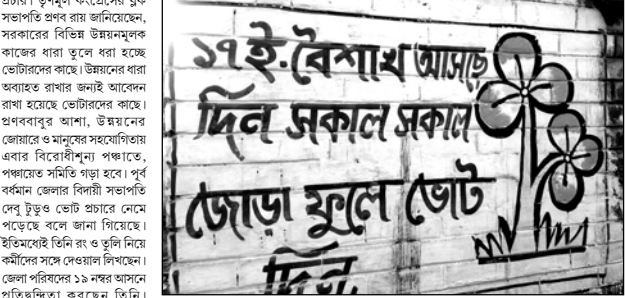 প্রচার। তৃণমূল কংগ্রেসের ব্লক
সভাপতি প্রণব রায় জানিয়েছেন,
সরকারের বিভিন্ন উন্নয়নমূলক
কাজের ধারা তুলে ধরা হচ্ছে
ভোটারদের কাছে। উন্নয়নের ধারা
অব্যাহত রাখার জন্যই আবেদন
রাখা হয়েছে ভোটারদের কাছে।
প্রণববাবুর আশা, উন্নয়নের
জোয়ারে ও মানুষের সহযোগিতায়
এবার বিরোধীশূন্য পঞ্চাতে,
পঞ্চায়েত সমিতি গড়া হবে। পূর্ব
বর্ধমান জেলার বিদায়ী সভাপতি
দেবু টুডুও ভোট প্রচারে নেমে
পড়েছে বলে জানা গিয়েছে।
ইতিমধ্যেই তিনি রং ও তুলি নিয়ে
কর্মীদের সঙ্গে দেওয়াল লিখছেন।
জেলা পরিষদের ১৯ নম্বর আসনে
প্রতিদ্বন্দ্বিতা করছেন তিনি।
১৭ই. বৈশাখ আসছে
দিন সকাল সকাল
জোড়া ফুলে ভোট
দিন.